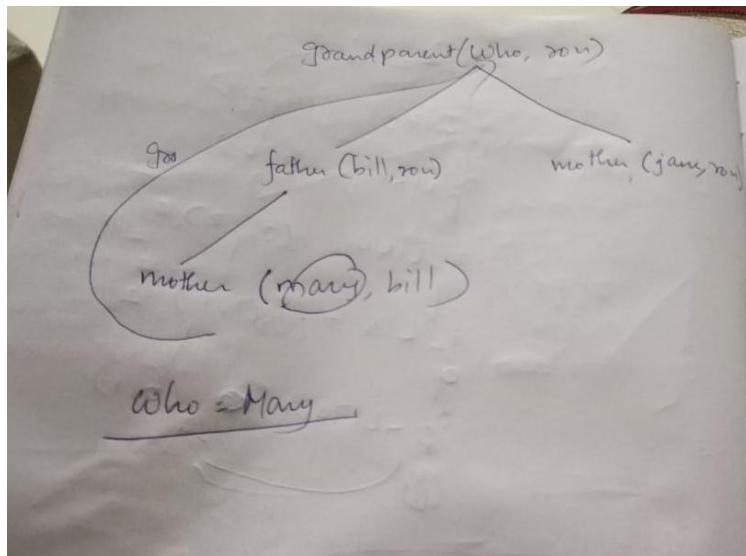 grandparent(Who, ron)
father (bill, ron)
mother (jane, ron)
mother (mary, bill)
Who = Mary